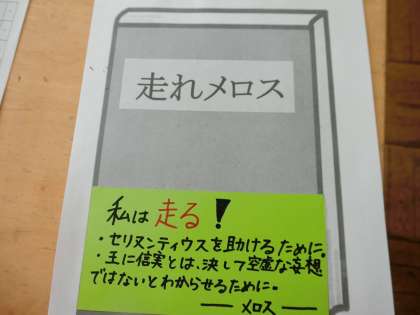 走れメロス
私は走る!
・セリヌンティウスを助けるために。
・王に信実とは、決して空虚な妄想
ではないとわからせるために。
── メロス ──